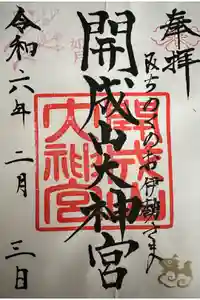 奉拝
みちのくのお伊勢さま
開成山大神宮
開成山
大神宮
令和六年二月三日